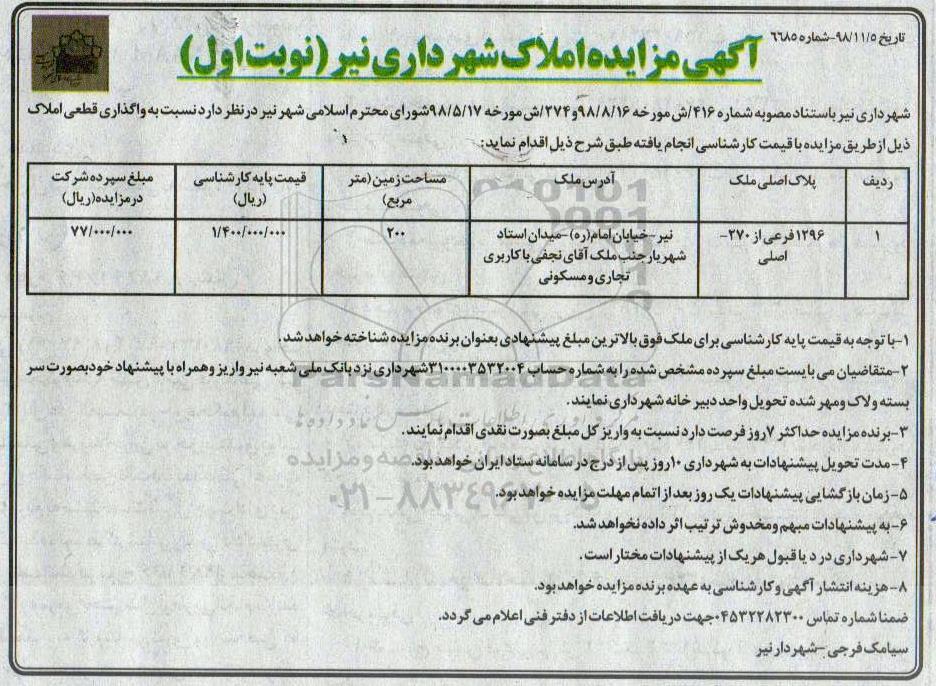 تاریخ ۹۸/۱۱/۵-شماره ۶۶۸۵
آگهی مزایده املاک شهرداری نیر (نوبت اول)
شهرداری نیر باستناد مصوبه شماره ۴۱۶/ش مورخه ۹۸/۸/۱۶و ۲۷۴/ش مورخه ۹۸/۵/۱۷شورای محترم اسلامی شهر نیر درنظر دارد نسبت به واگذاری قطعی املاک
ذیل از طریق مزایده با قیمت کارشناسی انجام یافته طبق شرح ذیل اقدام نماید:
ردیف	پلاک اصلی ملک	آدرس ملک	مساحت زمین (متر مربع)	قیمت پایه کارشناسی (ریال)	مبلغ سپرده شرکت درمزایده(ریال)
۱	۱۲۹۶فرعی از ۲۷۰- اصلی	نیر-خیابان امام(ره)-میدان استاد شهریار جنب ملک آقای نجفی با کاربری تجاری و مسکونی	۲۰۰	۱/۴۰۰/۰۰۰/۰۰۰	۷۷/۰۰۰/۰۰۰
۱-با توجه به قیمت پایه کارشناسی برای ملک فوق بالاترین مبلغ پیشنهادی بعنوان برنده مزایده شناخته خواهد شد.
۲-متقاضیان می بایست مبلغ سپرده مشخص شده را به شماره حساب ۳۱۰۰۰۰۳۵۳۲۰۰۴شهرداری نزد بانک ملی شعبه نیر واریز وهمراه با پیشنهاد خود بصورت سر
بسته ولاک ومهر شده تحویل واحد دبیر خانه شهرداری نمایند.
۳-برنده مزایده حداکثر ۷روز فرصت دارد نسبت به واریز کل مبلغ بصورت نقدی اقدام نمایند.
۴-مدت تحویل پیشنهادات به شهرداری ۱۰روز پس از درج در سامانه ستاد ایران خواهد بود.
۵-زمان بازگشایی پیشنهادات یک روز بعد از اتمام مهلت مزایده خواهد بود.
۶-به پیشنهادات مبهم ومخدوش ترتیب اثر داده نخواهد شد.
۷-شهرداری در د یا قبول هر یک از پیشنهادات مختار است.
۸-هزینه انتشار آگهی و کارشناسی به عهده برنده مزایده خواهد بود.
ضمنا شماره تماس ۰۴۵۳۲۲۸۲۳۰۰جهت دریافت اطلاعات از دفتر فنی اعلام می گردد.
سیامک فرجی -شهردار نیر
ParsNamadData
۰۲۱-۸۸۳۴۹۶۷۰-۵